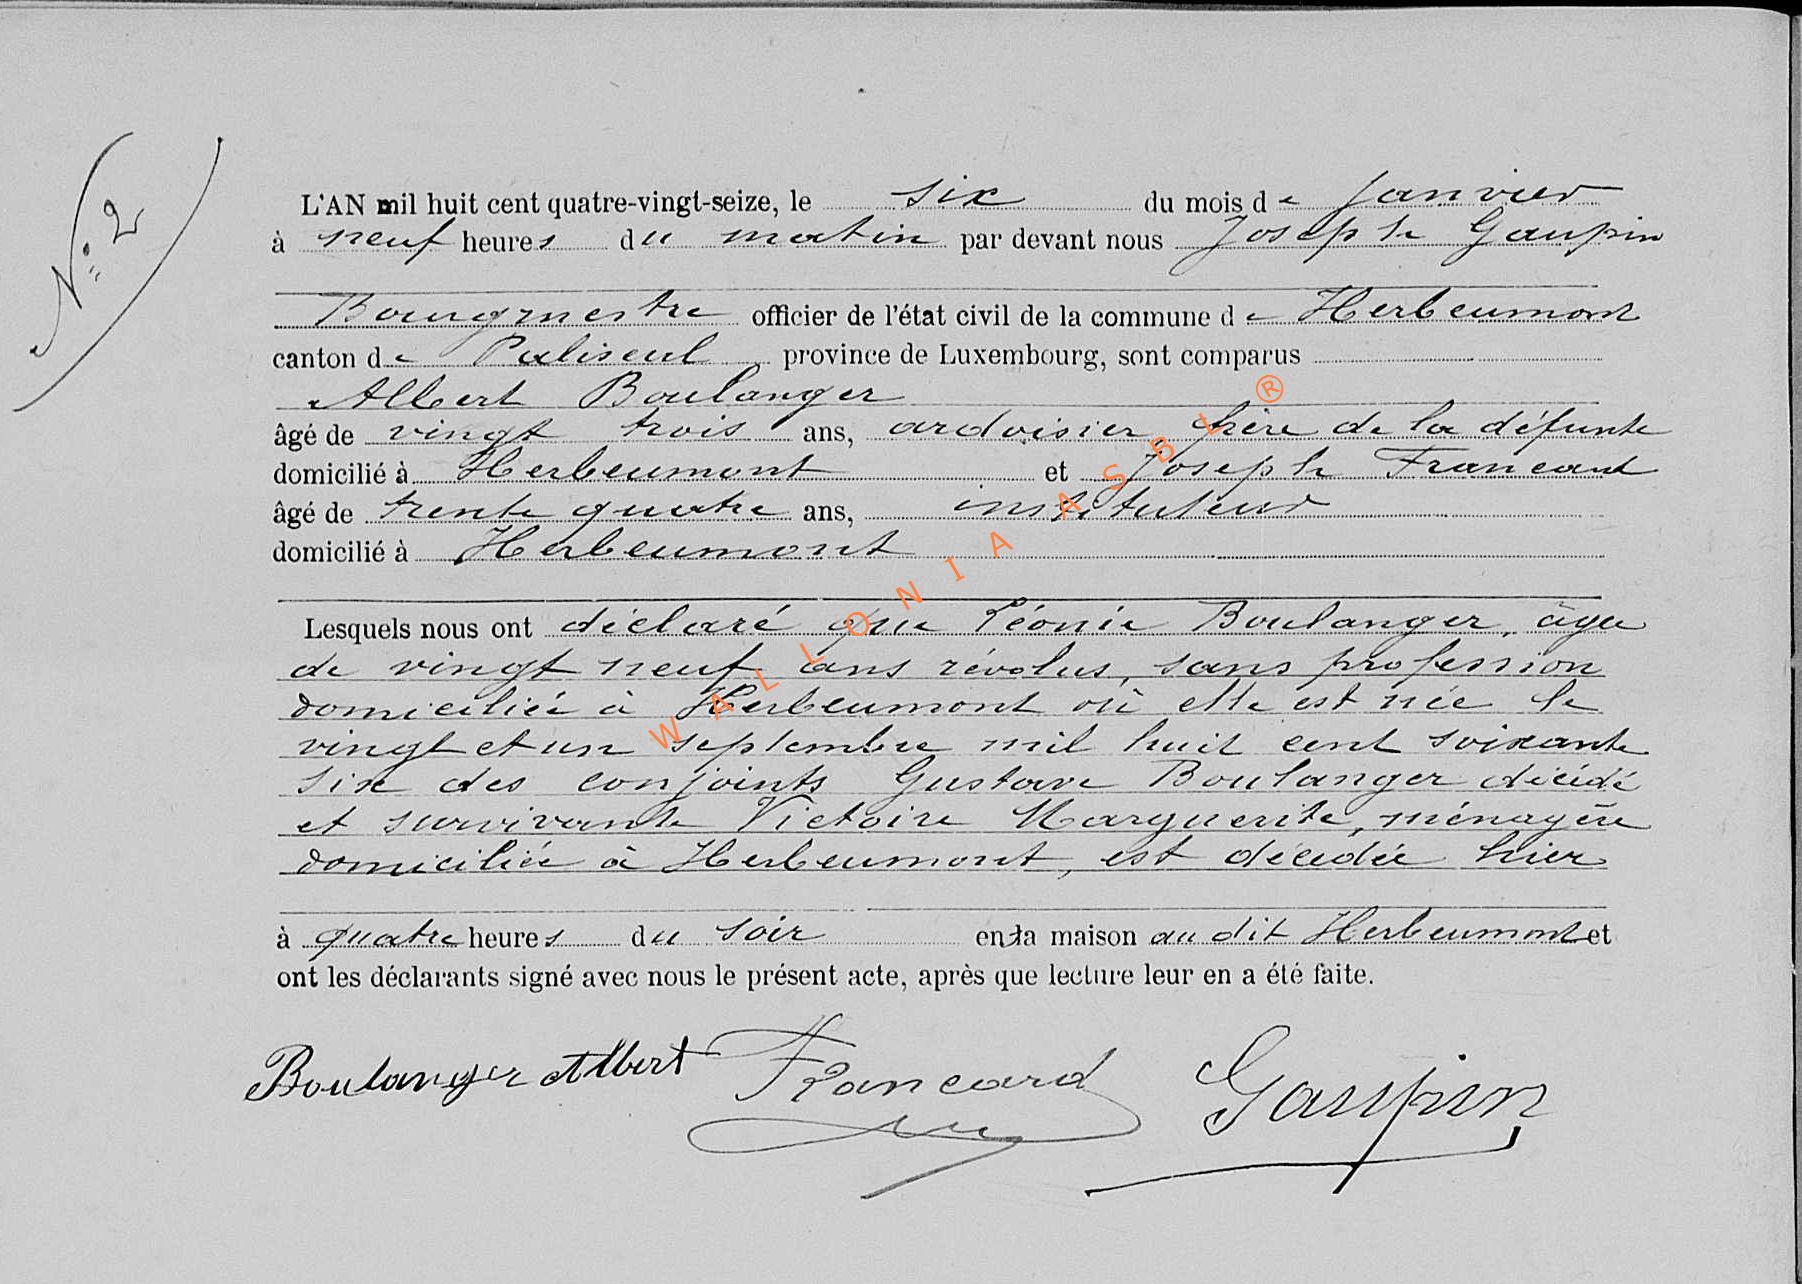 N° 2
L'AN mil huit cent quatre-vingt-seize, le six du mois de janvier
à neuf heures du matin par devant nous Joseph Gaupin
Bourgmestre officier de l'état civil de la commune de Herbeumont
canton de Paliseul province de Luxembourg, sont comparus
Albert Boulanger
âgé de vingt trois ans, ardoisier frère de la défunte
domicilié à Herbeumont et Joseph Francard
âgé de trente quatre ans, instituteur
domicilié à Herbeumont
Lesquels nous ont déclaré que Léonie Boulanger, âgée
de vingt neuf ans révolus, sans profession
domiciliée à Herbeumont où elle est née le
vingt et un septembre mil huit cent soixante
six des conjoints Gustave Boulanger décédé
et survivante Victoire Marguerite, ménagère
domiciliée à Herbeumont, est décédée hier
à quatre heures du soir en la maison au dit Herbeumont et
ont les déclarants signé avec nous le présent acte, après que lecture leur en a été faite.
Boulanger Albert Francard Gaupin
WALLONIA ASBL ®